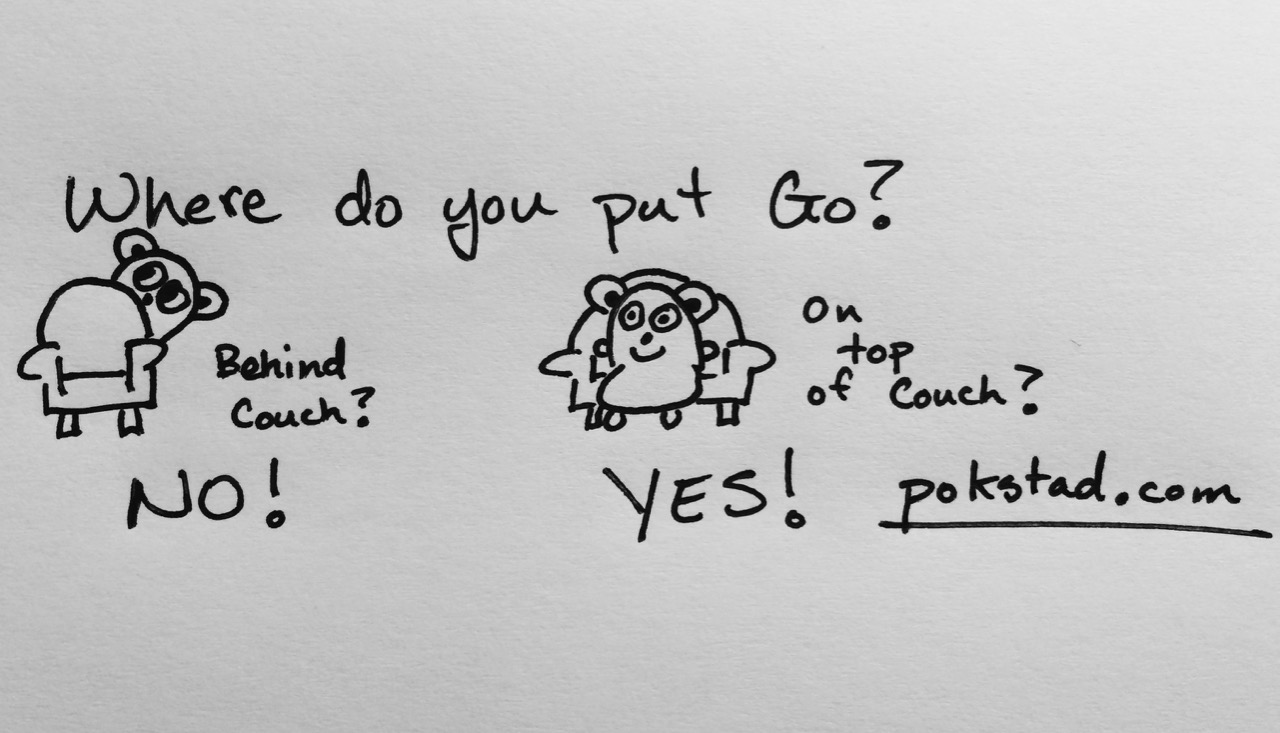 Where do you put Go?
Behind
Couch?
NO!
on
top
of Couch?
YES!
pokstad.com